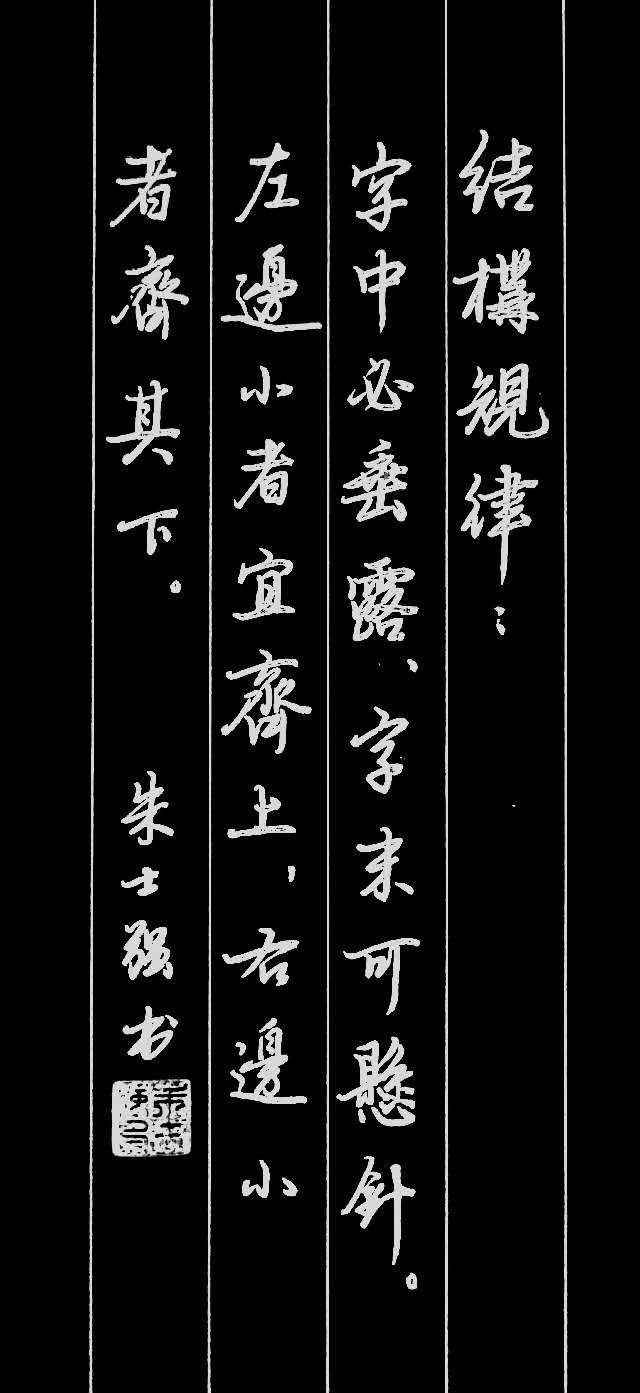 结構規律：
字中必垂露、字末可懸針。
左邊小者宜齊上，右邊小
者齊其下。
朱士强书